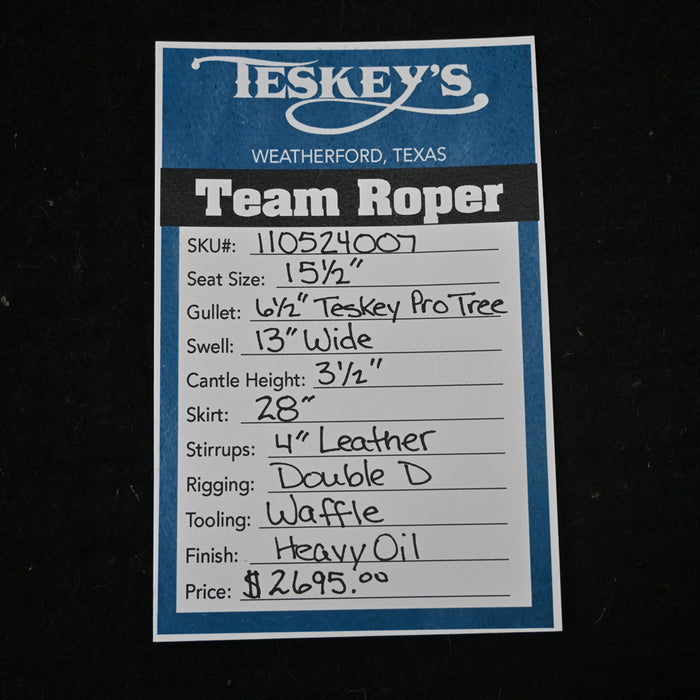 TESKEY'S
WEATHERFORD, TEXAS
Team Roper
SKU#: 110524007
Seat Size: 15½"
Gullet: 6½" Teskey Pro Tree
Swell: 13" Wide
Cantle Height: 3½"
Skirt: 28"
Stirrups: 4" Leather
Rigging: Double D
Tooling: Waffle
Finish: Heavy Oil
Price: $2695.00